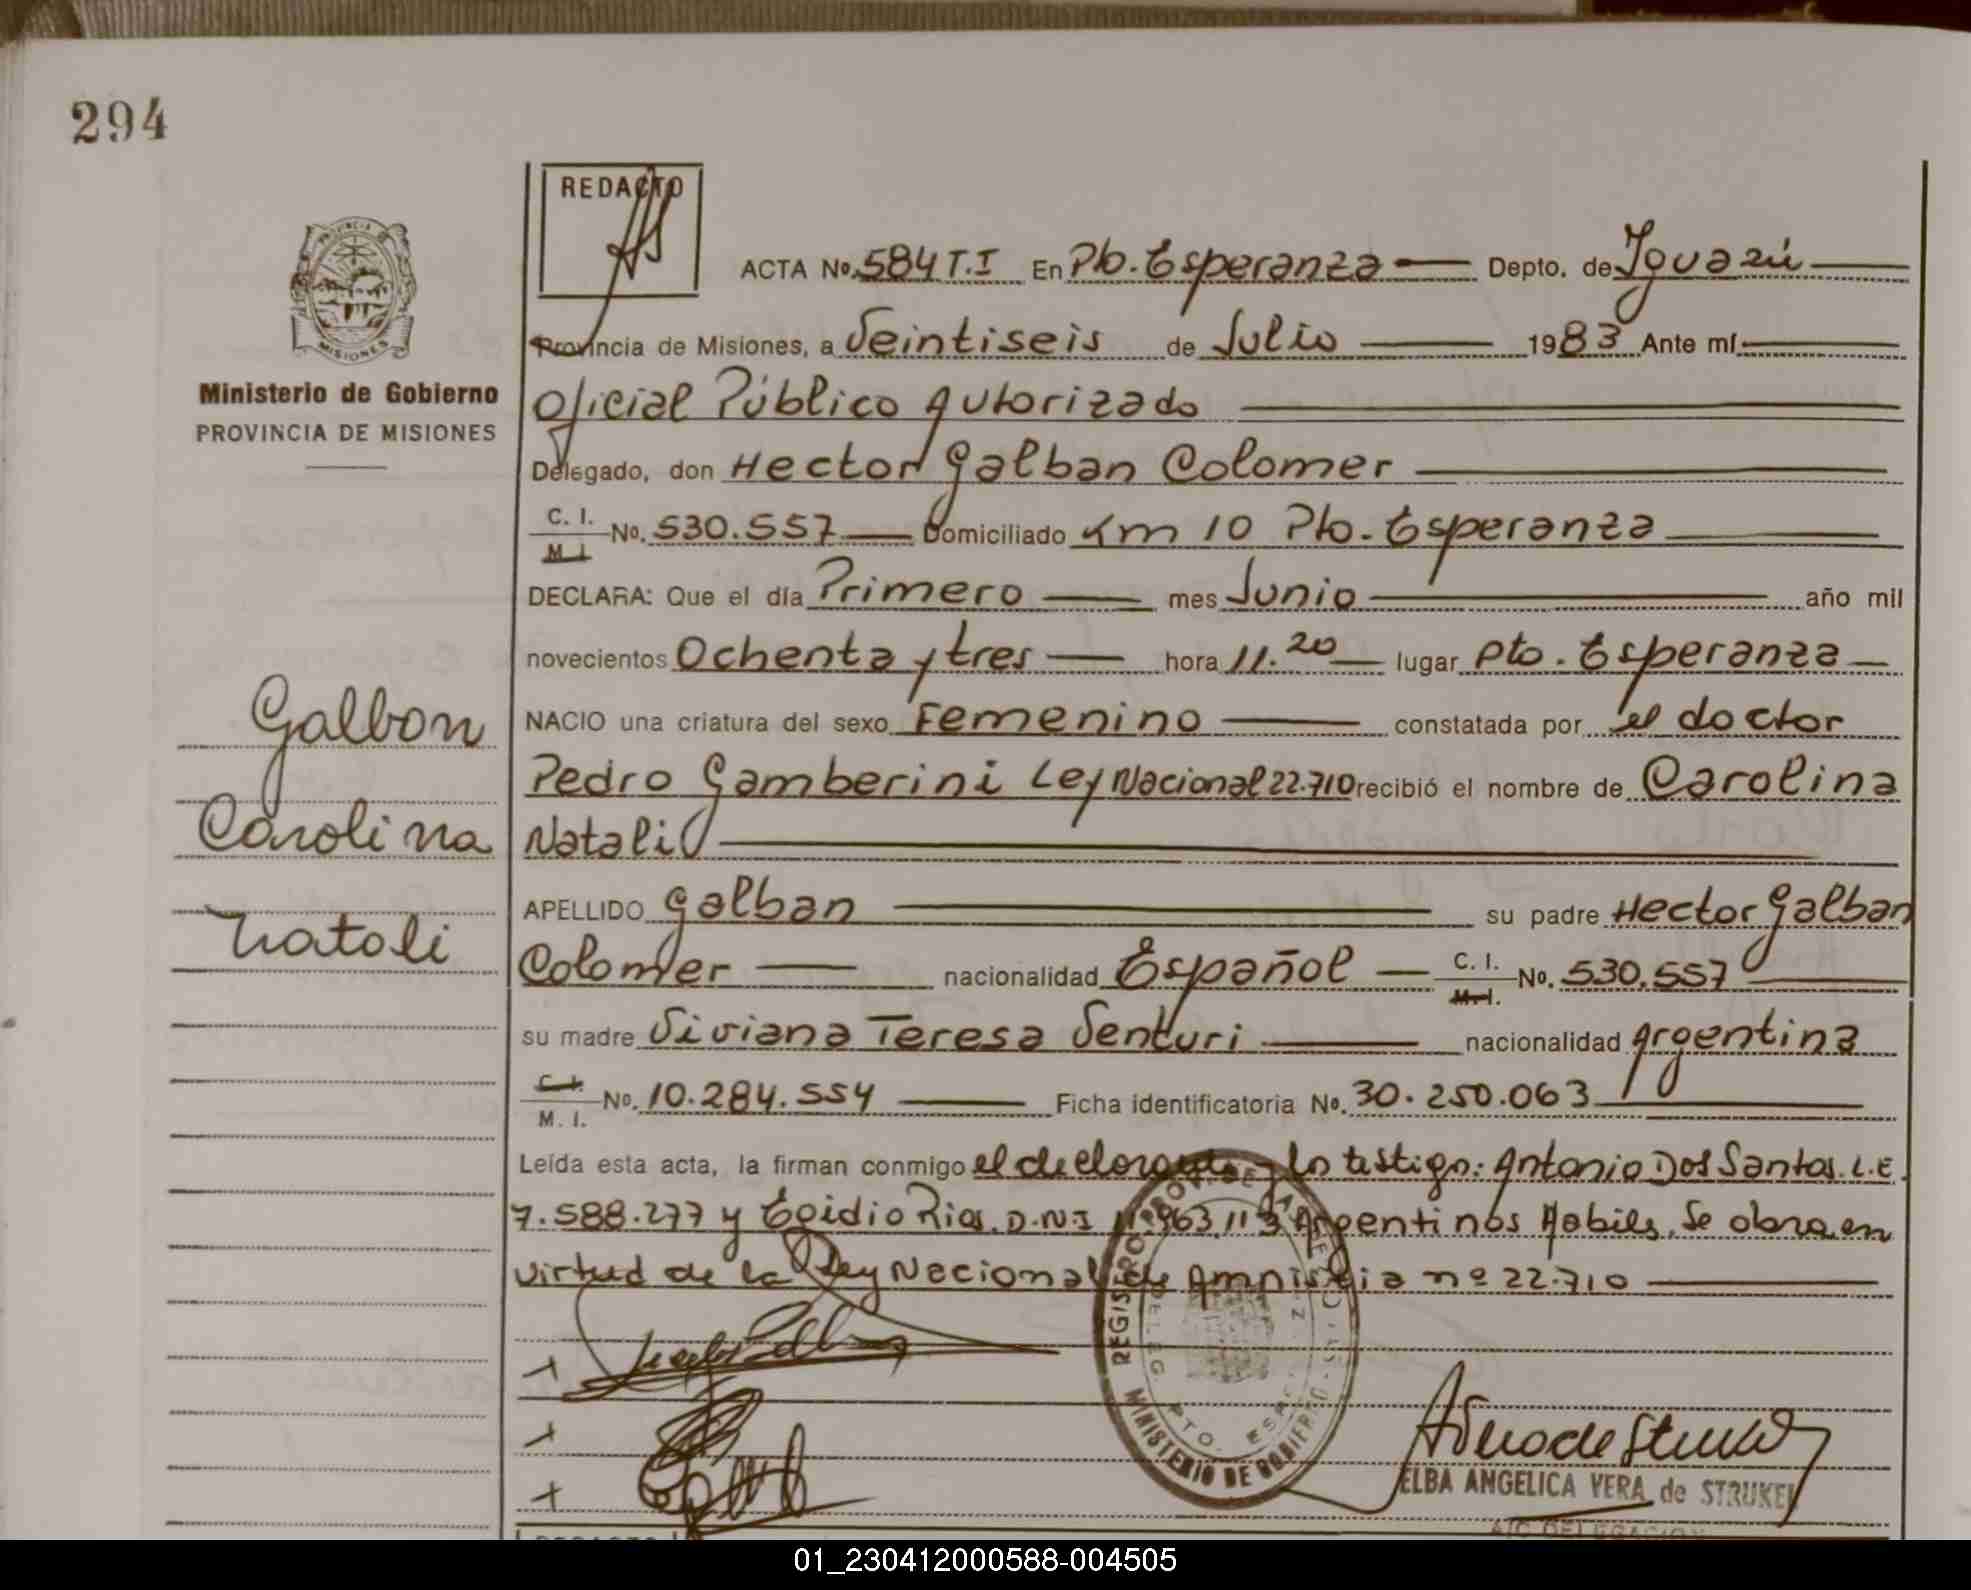 294
REDACTO
ACTA No. 584 T.I En Pto. Esperanza Depto. de Iguazú
Provincia de Misiones, a Veintiseis de Julio 1983 Ante mí
Oficial Público Autorizado
Delegado, don Hector Galban Colomer
C. I. M. I. No. 530.557 Domiciliado Km 10 Pto. Esperanza
DECLARA: Que el día Primero mes Junio año mil
novecientos Ochenta y tres hora 11.20 lugar Pto. Esperanza
NACIO una criatura del sexo Femenino constatada por el doctor
Pedro Gamberini Ley Nacional 22.710 recibió el nombre de Carolina
Natali
APELLIDO Galban su padre Hector Galban
Colomer nacionalidad Español C. I. M. I. No. 530.557
su madre Viviana Teresa Venturi nacionalidad Argentina
C. I. M. I. No. 10.284.554 Ficha identificatoria No. 30.250.063
Leída esta acta, la firman conmigo el declarante y lo testigo: Antonio Dos Santos. L.E
7.588.277 y Egidio Rios. D.N.I 11.963.113 Argentinos Habiles. Se obra en
virtud de la Ley Nacional de Amnistia nº 22.710
PROVINCIA DE
MISIONES
Ministerio de Gobierno
PROVINCIA DE MISIONES
Galban
Carolina
Natali
REGISTRO PROV. DE LAS PERSONAS
MINISTERIO DE GOBIERNO
DELEG. PTO. ESPERANZA
ELBA ANGELICA VERA de STRUKEL
A/C DELEGACION
REDACTO
01_230412000588-004505